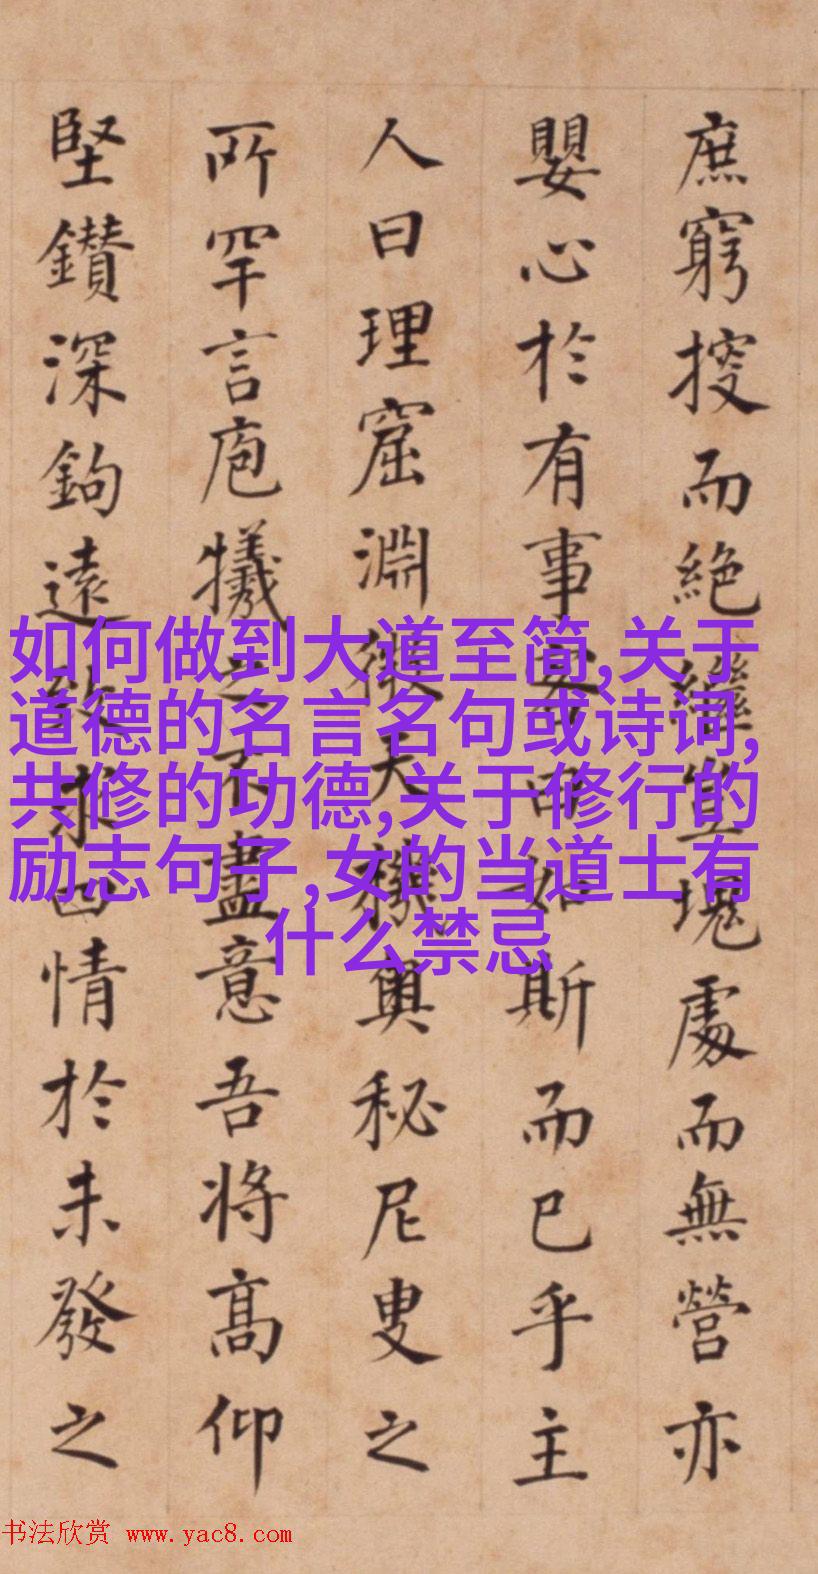 庶窮搜而絶繼豈塊處而無營亦
嬰心於有事如斯而已乎主
人曰理窟淵微天機輿秘尼叟之
所罕言庖犧之不盡意吾将髙仰
堅鑚深鉤遠致求四情於未發之
如何做到大道至简,关于
道德的名言名句或诗词,
共修的功德,关于修行的
励志句子,女的当道士有
什么禁忌
书法欣赏 www.yac8.com